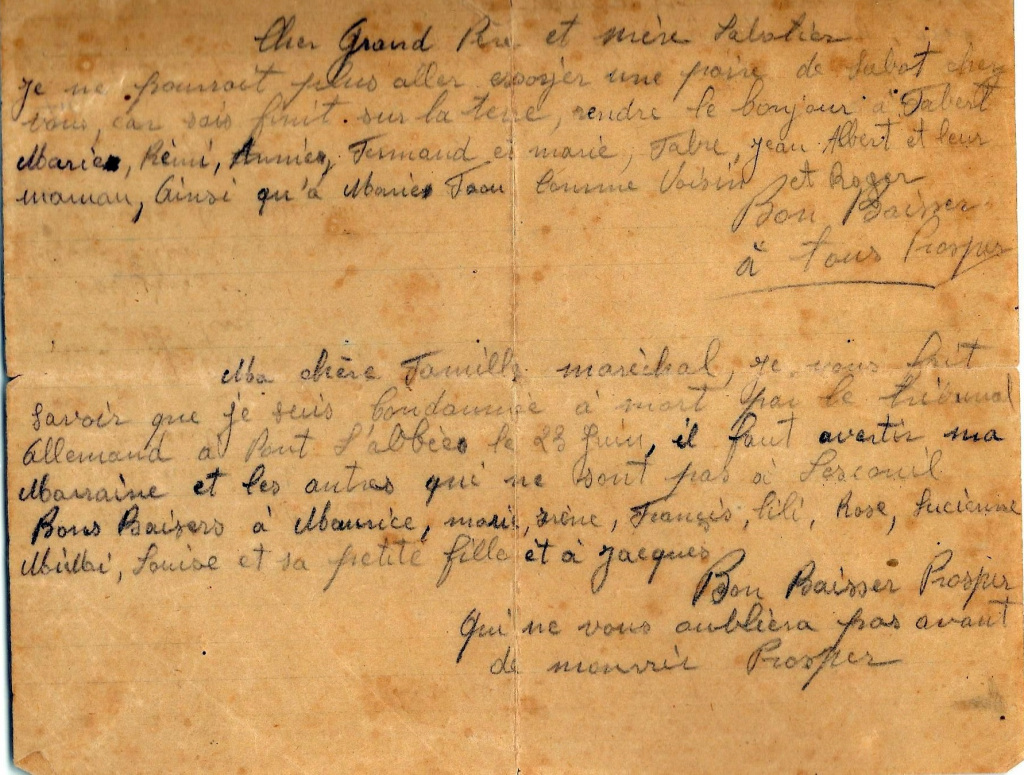 Cher Grand Père et mère Sabatier
Je ne pourrait plus aller essayer une paire de Sabot chez
vous, car sais finit sur la terre, rendre le bonjour à Tabert
Marie, Rémi, Annie, Fernand et marie, Fabre, Jean Albert et leur
maman, Ainsi qu'à Marie comme Voisin et Roger
Bon Baisser
à tous Prosper
Ma chère Famille maréchal, Je vous fait
savoir que je suis Condamnné à mort par le tribunal
Allemand à Pont L'abbée le 23 Juin, il faut avertir ma
Marraine et les autres qui ne sont pas à Lesconil
Bons Baisers à Maurice, marie, irène, François, Lili, Rose, Lucienne
MiMi, Louise et sa petite fille et à Jacques
Bon Baisser Prosper
Qui ne vous oublièra pas avant
de mourrir Prosper